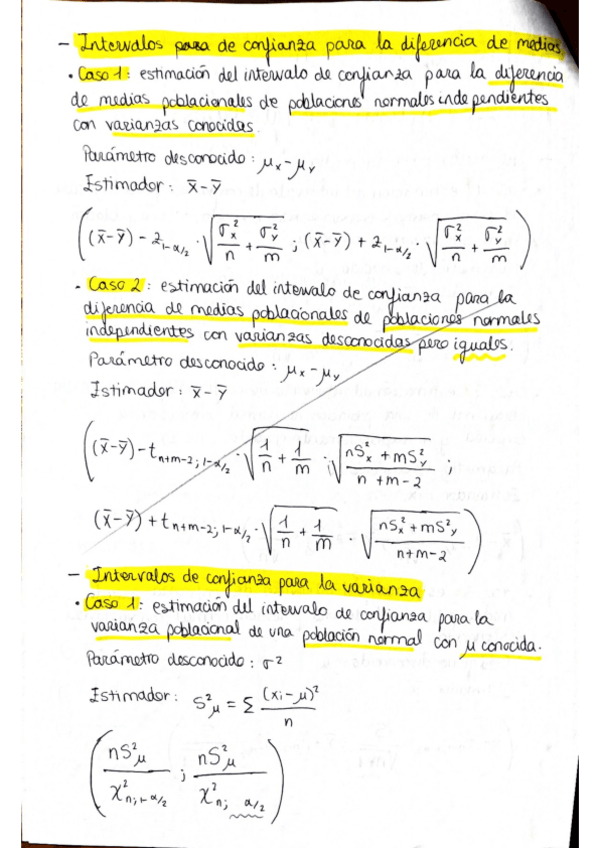 - Intervalos para de confianza para la diferencia de medias
• Caso 1: estimación del intervalo de confianza para la diferencia
de medias poblacionales de poblaciones normales independientes
con varianzas conocidas.
Parámetro desconocido: μₓ-μᵧ
Estimador: x̄-ȳ
((x̄-ȳ) - z₁₋α/₂ · √(σ²ₓ/n + σ²ᵧ/m) ; (x̄-ȳ) + z₁₋α/₂ · √(σ²ₓ/n + σ²ᵧ/m))
• Caso 2: estimación del intervalo de confianza para la
diferencia de medias poblacionales de poblaciones normales
independientes con varianzas desconocidas pero iguales.
Parámetro desconocido: μₓ-μᵧ
Estimador: x̄-ȳ
((x̄-ȳ) - t n+m-2; 1-α/2 · √(1/n + 1/m) · √((nS²ₓ + mS²ᵧ)/(n+m-2)) ;
(x̄-ȳ) + t n+m-2; 1-α/2 · √(1/n + 1/m) · √((nS²ₓ + mS²ᵧ)/(n+m-2)))
- Intervalos de confianza para la varianza
• Caso 1: estimación del intervalo de confianza para la
varianza poblacional de una población normal con μ conocida.
Parámetro desconocido: σ²
Estimador: S²μ = Σ (xᵢ-μ)²/n
(nS²μ/χ² n; 1-α/2 ; nS²μ/χ² n; α/2)